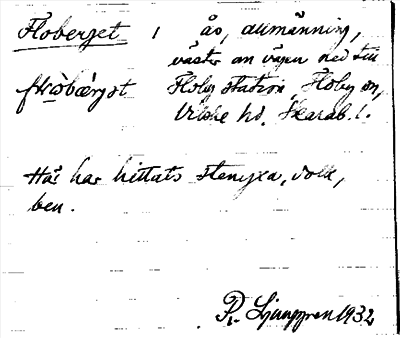 Floberget 1 ås, allmänning,
väster om vägen ned till
Floby station, Floby sn,
Vilske hd, Skarab. l.
Här har hittats stenyxa,
ben.
R. Ljunggren 1932